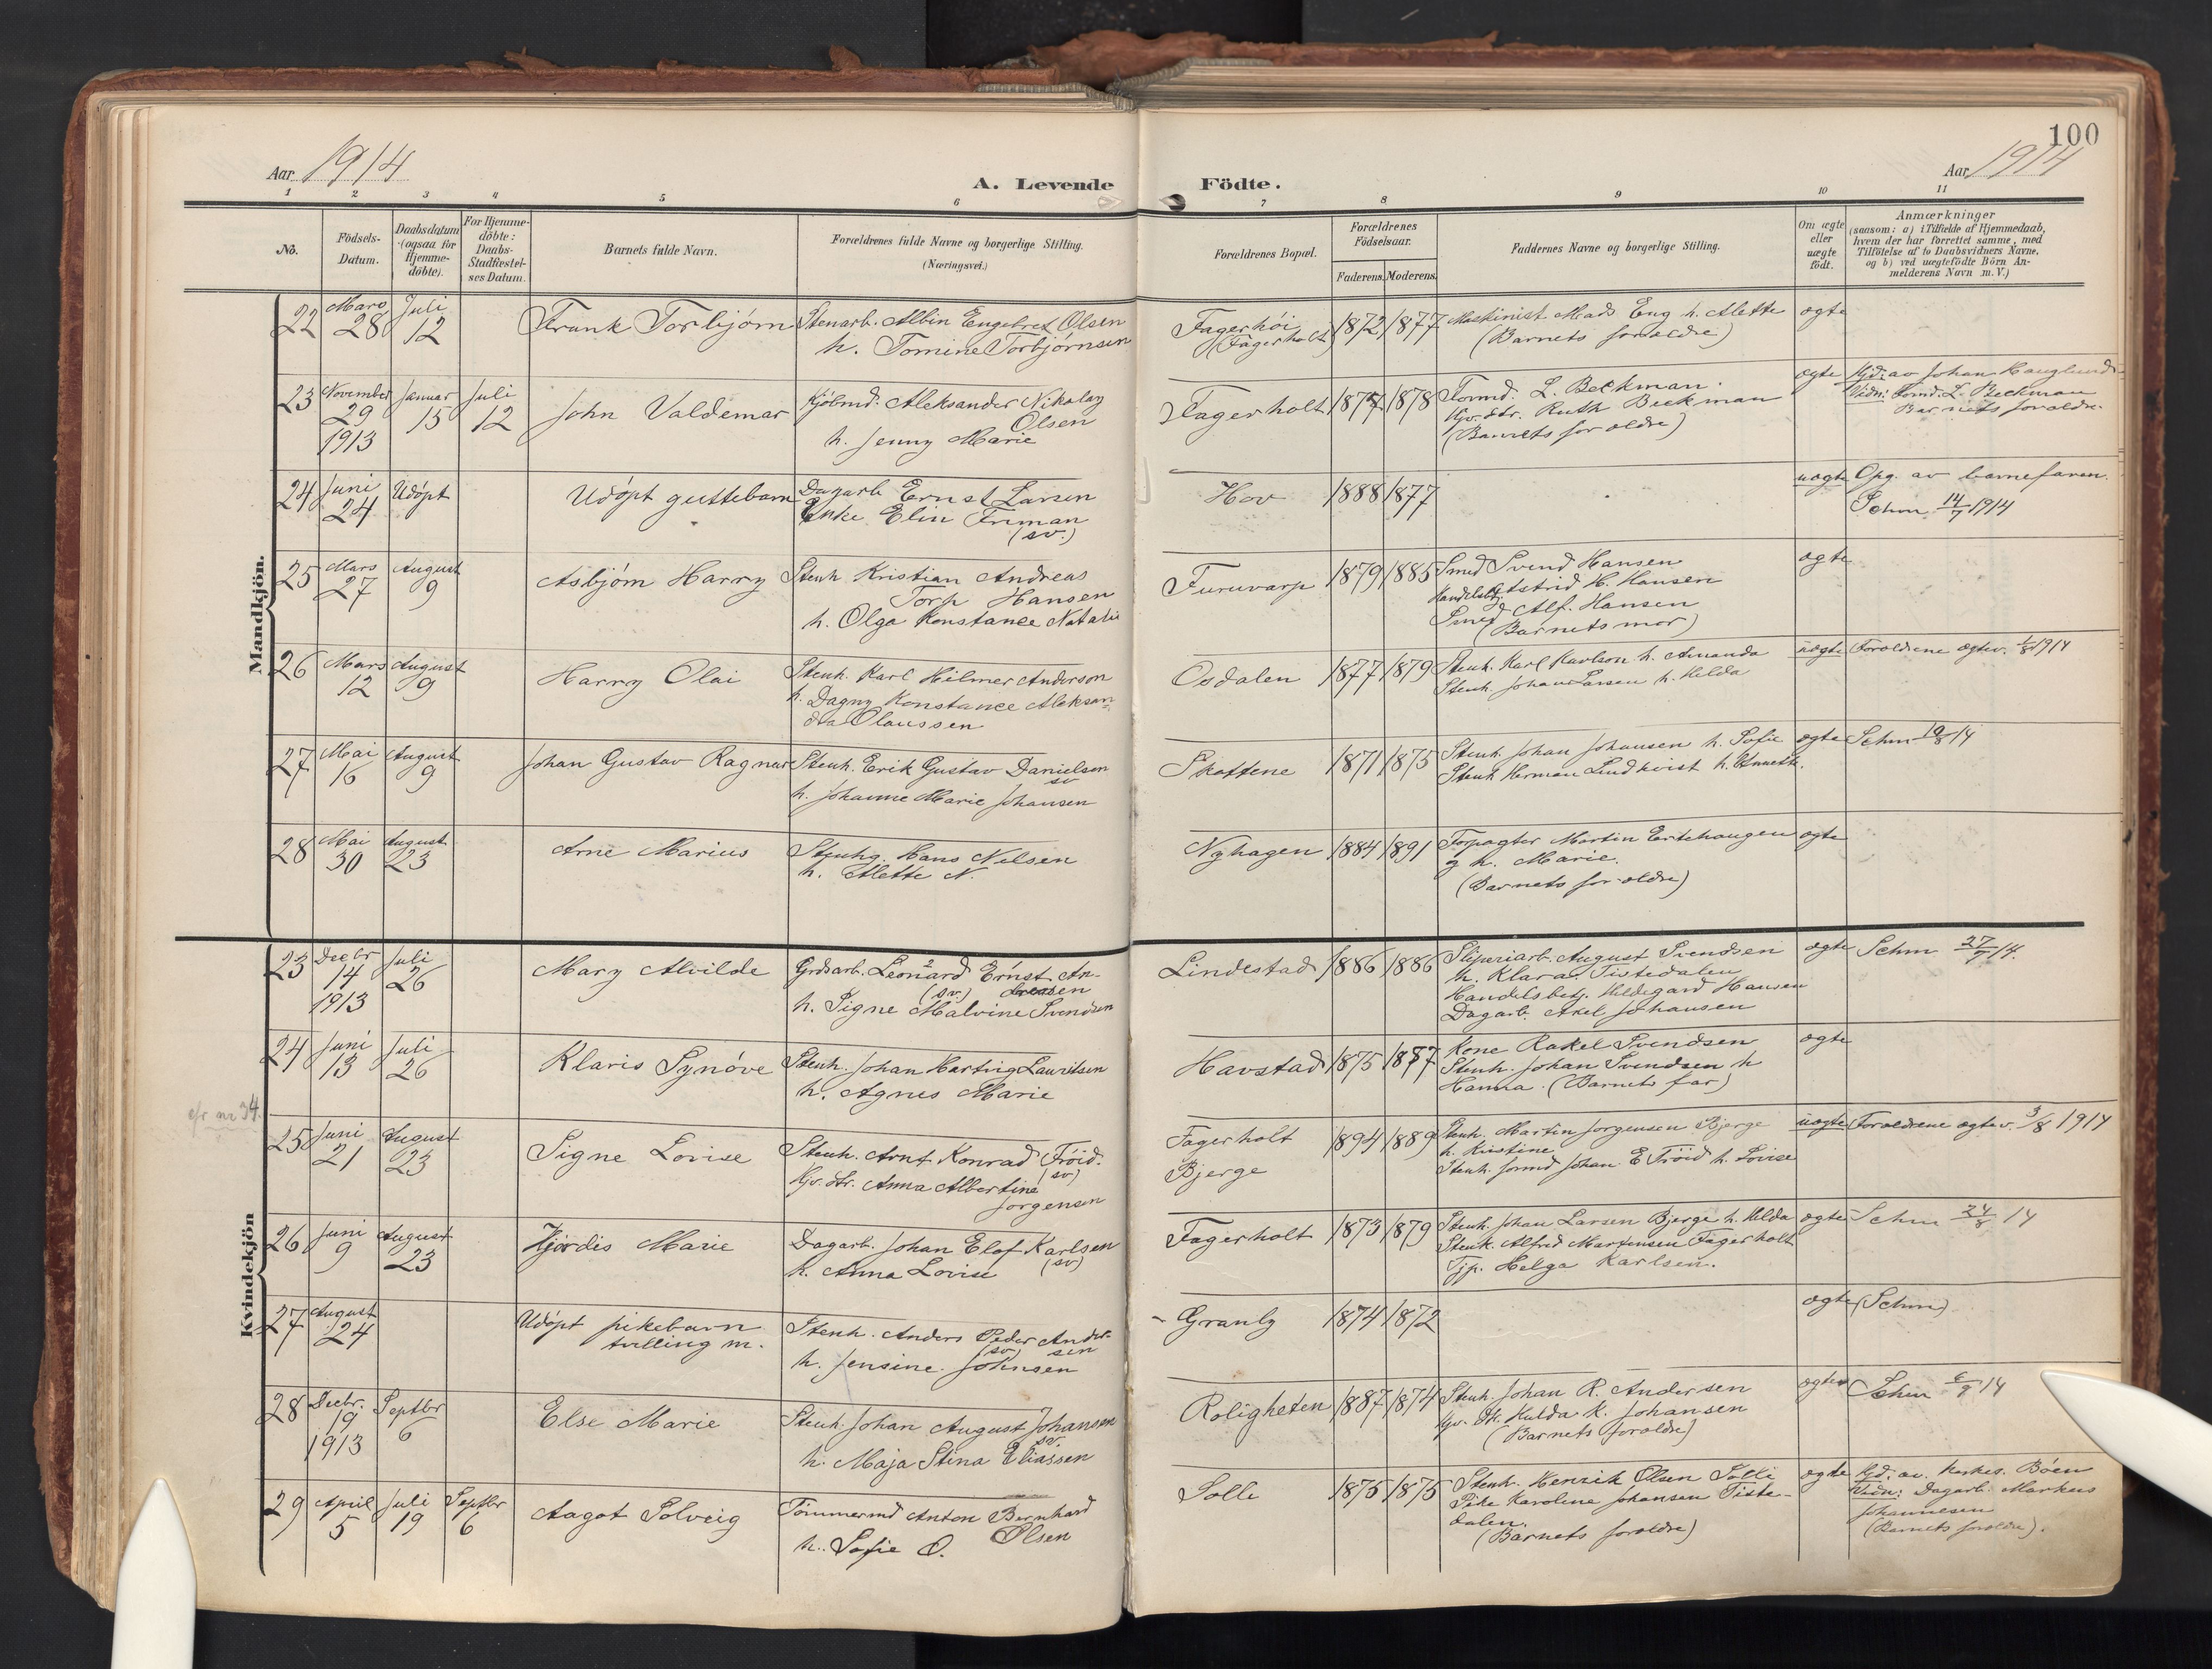 100
Aar 1914
A. Levende Födte.
Aar 1914
1 2 3 4 5 6 7 8 9 10 11
No.
Födsels-
Datum.
Daabsdatum
(ogsaa for
Hjemme-
döbte).
For Hjemme-
döbte:
Daabs-
Stadfæstel-
ses Datum.
Barnets fulde Navn.
Forældrenes fulde Navne og borgerlige Stilling.
(Næringsvei.)
Forældrenes Bopæl.
Forældrenes
Födselsaar.
Faderens. Moderens.
Faddernes Navne og borgerlige Stilling.
Om ægte
eller
uægte
födt.
Anmærkninger
(saasom: a) i Tilfælde af Hjemmedaab,
hvem der har forrettet samme, med
Tilföielse af to Daabsvidners Navne,
og b) ved uægtefödte Börn An-
melderens Navn m. V.)
Mandkjön.
22 Mars 28 Juli 12 Frank Torbjørn Stenarb. Albin Engebret Olsen
h. Tomine Torbjørnsen
Fagerhøi
(Fagerholt) 1872 1877 Maskinist Mads Eng h. Alette
(Barnets foreldre) ægte
23 November 29 1913 Januar 15 Juli 12 John Valdemar Kjøbmd. Aleksander Nikolay
Olsen
h. Jenny Marie
Fagerholt 1877 1878 Formd. L. Beckman.
Gjv.dtr. Ruth Beckman
(Barnets foreldre) ægte Hjd. av Johan Hauglund
Vidn: Formd. L. Beckman
Barnets foreldre.
24 Juni 24 Udøpt Udøpt guttebarn Dagarb. Ernst Larsen
Enke Elin Friman
(sv.)
Hov 1888 1877 uægte Opg. av barnefaren.
Schm 14/7 1914
25 Mars 27 August 9 Asbjørn Harry Stenh. Kristian Andreas
Torp Hansen
h. Olga Konstance Natalie
Furuvarp 1879 1885 Smed Svend Hansen
Handelsbtj. Astrid H. Hansen
Smed Alf. Hansen
(Barnets mor) ægte
26 Mars 12 August 9 Harry Olai Stenh. Karl Hilmer Anderson
h. Dagny Konstance Aleksan-
dra Olaussen
Osdalen 1877 1879 Stenh. Karl Karlson h. Amanda
Stenh. Johan Larsen h. Helda
uægte Foreldrene ægtev. 1/8 1914
27 Mai 16 August 9 Johan Gustav Ragnar Stenh. Erik Gustav Danielson
sv
h. Johanne Marie Johansen
Skottene 1871 1875 Stenh. Johan Johansen h. Sofie
Stenh Herman Lindkvist h. Annette.
ægte Schm 10/8 14
28 Mai 30 August 23 Arne Marius Stenhg. Hans Nilsen
h. Alette N.
Nyhagen 1884 1891 Forpagter Martin Ertehaugen
og h. Marie.
(Barnets foreldre) ægte
Kvindekjön
23 Decbr 14 1913 Juli 26 Mary Alvilde Grdsarb. Leonard Ernst An-
(sv.) dreasen
h. Signe Malvine Svendsen
Lindestad 1886 1886 Sliperiarb. August Svendsen
h. Klara. Tistedalen
Handelsbetj. Hildegard Hansen
Dagarb. Axel Johansen
ægte Schm 27/7 14.
24 Juni 13 Juli 26 Klaris Synøve Stenh. Johan Hartvig Lauritsen
h. Agnes Marie
Havstad 1875 1887 Kone Rakel Svendsen
Stenh. Johan Svendsen h
Hanna. (Barnets far) ægte
cfr nr 34.
25 Juni 21 August 23 Signe Lovise Stenh. Arnt Konrad Frøid.
(sv)
Gjv. dtr. Anna Albertine
Jørgensen
Fagerholt
Bjerge 1894 1889 Stenh. Martin Jørgensen Bjerge
h. Kristine
Stenh. formd Johan E Frøid h. Lovise
uægte Foreldrene ægtev. 3/8 1914
26 Juni 9 August 23 Hjørdis Marie Dagarb. Johan Elof Karlsen
(sv)
h. Anna Lovise
Fagerholt 1873 1879 Stenh. Johan Larsen Bjerge h. Helda
Stenh. Alfred Martinsen Fagerholt
Tjp. Helga Karlsen.
ægte Schm 24/8 14
27 August 24 Udøpt pikebarn
tvilling m.
Stenh. Anders Peder Ander-
(sv) sen
h. Jensine Johnsen
Granly 1874 1872 ægte (Schm)
28 Decbr. 19 1913 Septbr 6 Else Marie Stenh. Johan August Johansen
sv.
h. Maja Stina Eliassen
Roligheten 1887 1874 Stenh. Johan R. Andersen
Gjv. dtr. Hulda K. Johansen
(Barnets foreldre)
ægte Schm 6/9 14
29 April 5 Juli 19 Septbr 6 Aagot Solveig Tømmermd Anton Bernhard
Olsen
h. Sofie O.
Solli 1875 1875 Stenh. Henrik Olsen Solli
Pike Karoline Johansen Tiste-
dalen.
(Barnets foreldre)
ægte Hjd. av. Kirkes. Bøen
Vidn: Dagarb. Markus
Johannesen
(Barnets foreldre).